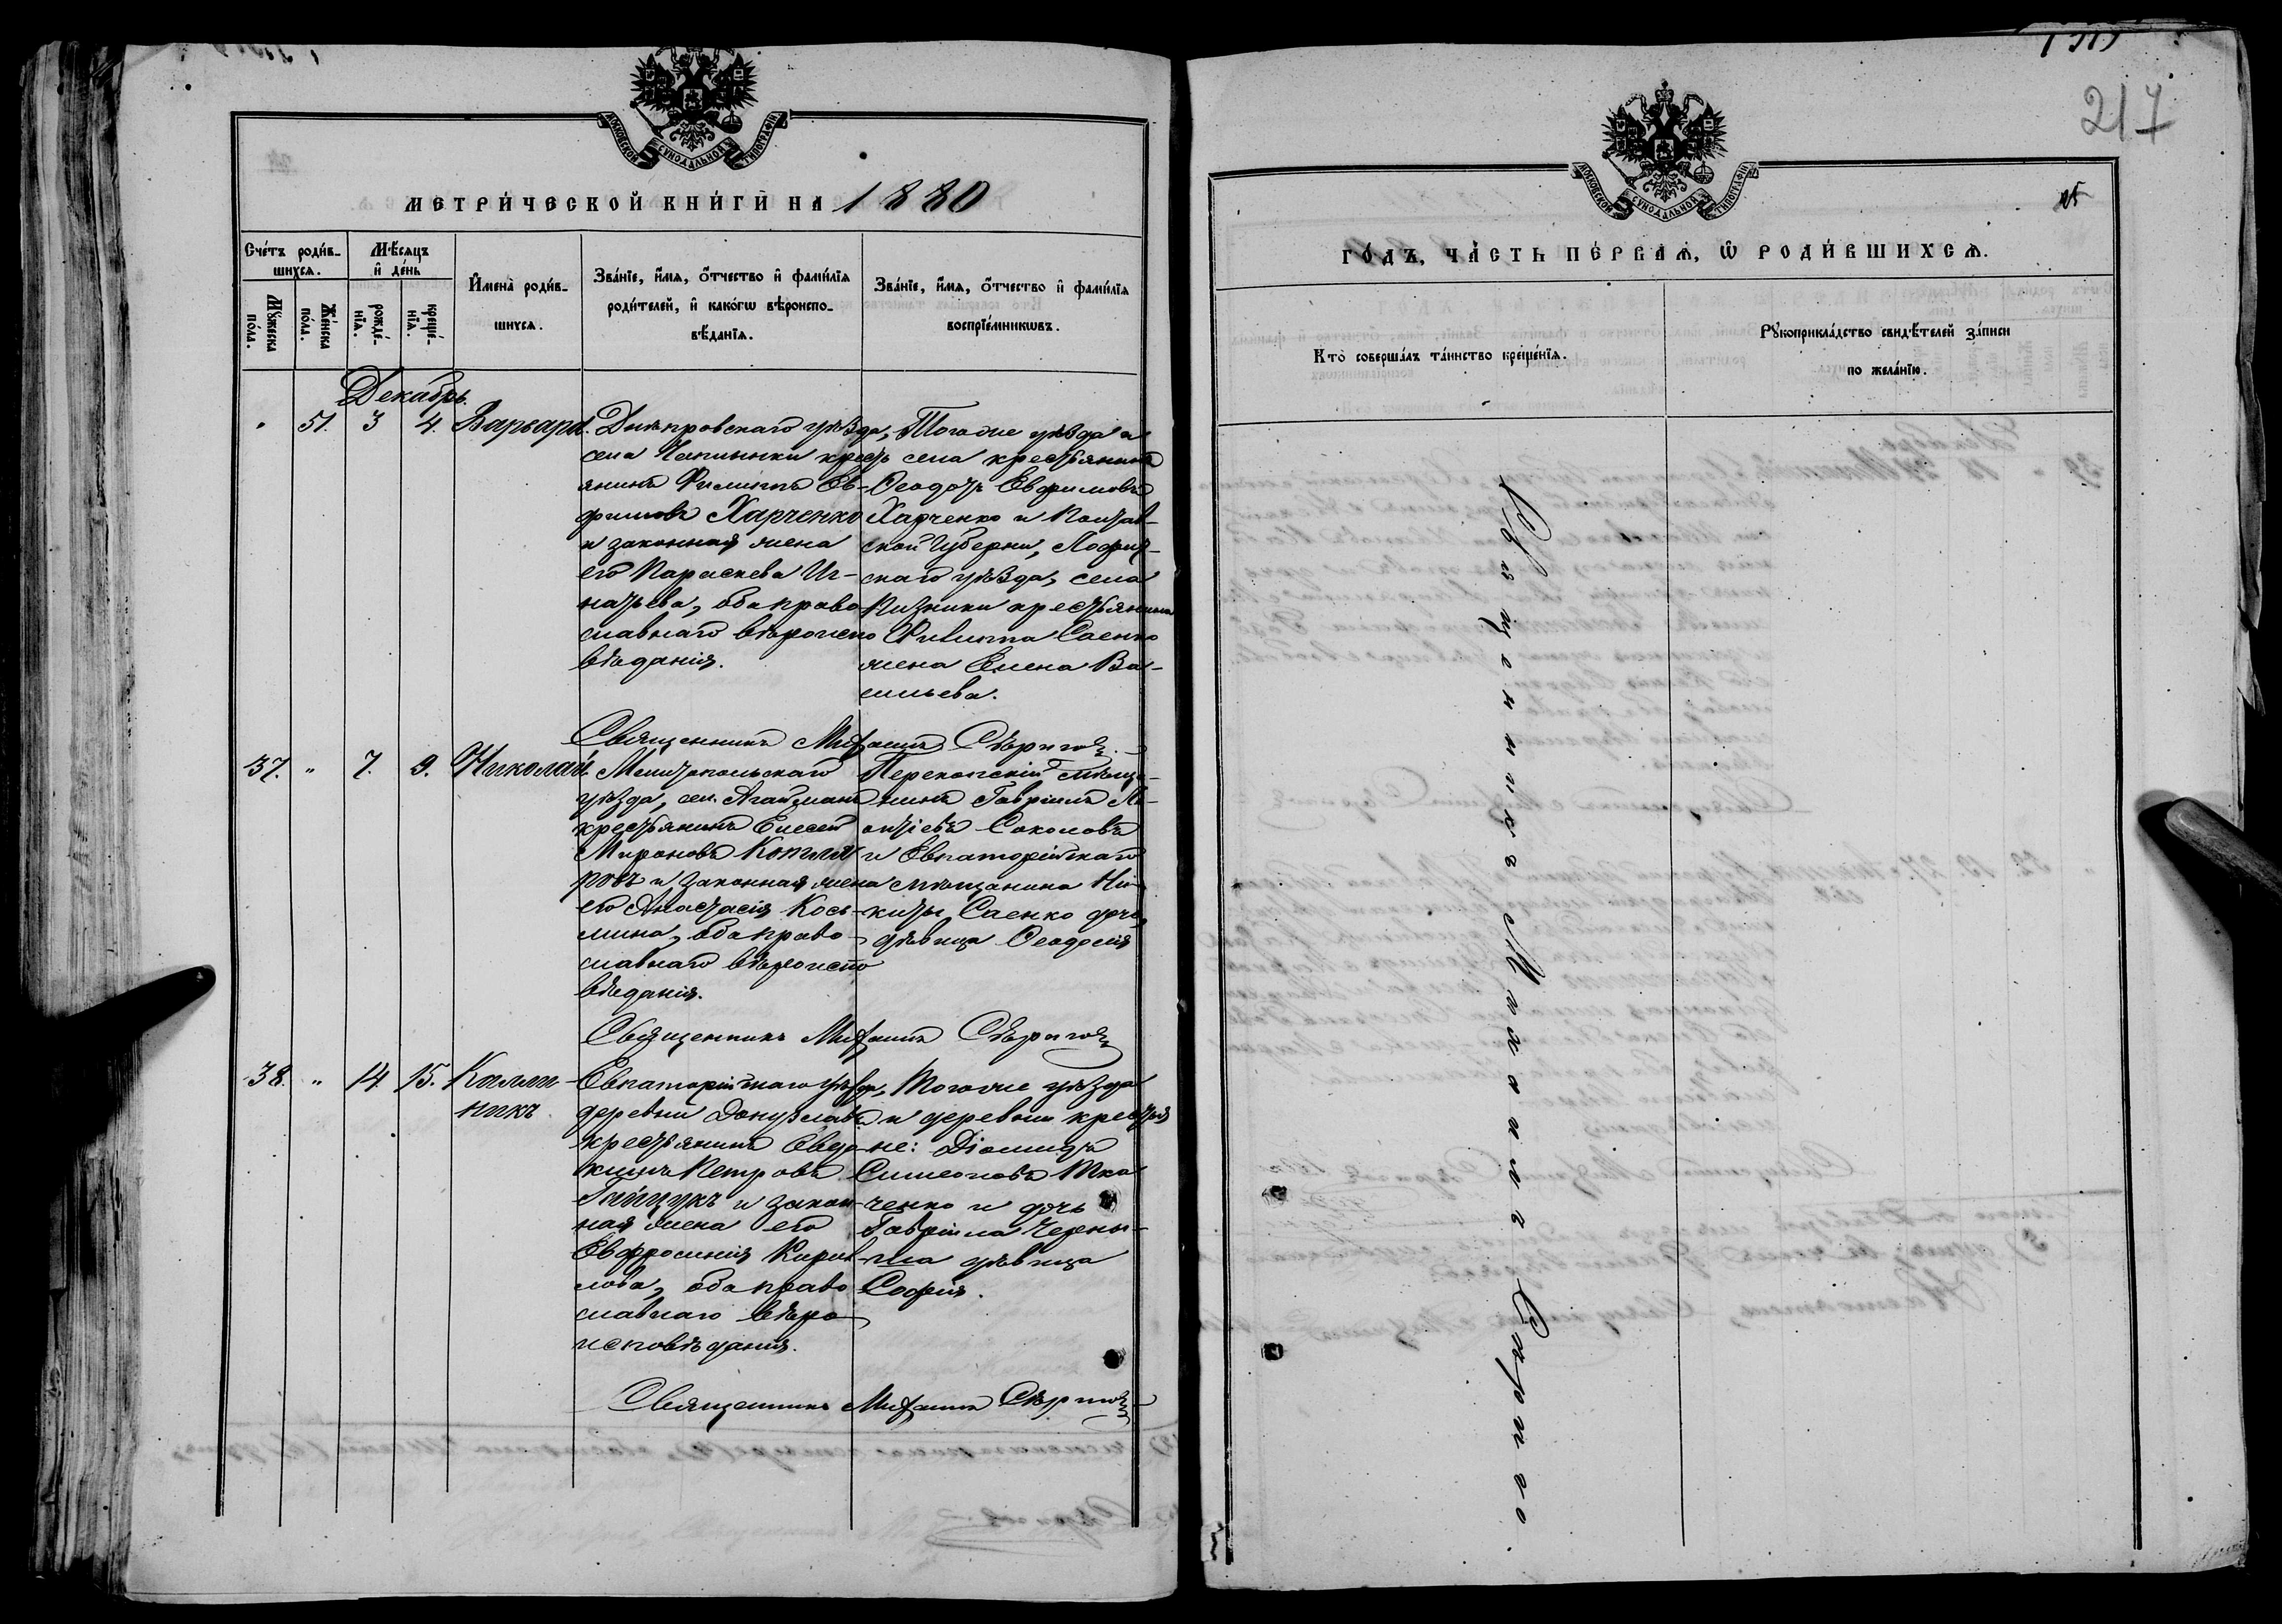 217
МОСКОВСКОЙ СѴНОДАЛЬНОЙ ТИПОГРАФІИ
МЕТРИ́ЧЕСКОЙ КНИ́ГИ НА 1880
Сче́тъ роди́в-
шихсѧ.
Мꙋжеска
по́ла.
Же́нска
по́ла.
Мѣ́сѧцъ
и҆ де́нь
рожде́-
нїѧ.
креще́-
нїѧ.
И҆мена̀ роди́в-
шихсѧ.
Зва́нїе, и҆́мѧ, ѻ҆́тчество и҆ фами́лїѧ
роди́телей, и҆ како́гѡ вѣроиспо-
вѣ́данїѧ.
Зва́нїе, и҆́мѧ, ѻ҆́тчество и҆ фами́лїѧ
воспрїе́мникѡвъ.
Декабрь.
" 51. 3 4. Варвара.
Днѣпровскаго уѣзда,
села Чаплынки кресть
янинъ Филиппъ Ев-
фимовъ Харченко
и законная жена
его Параскева Иг-
натьева, оба право
славнаго вѣроиспо
вѣданія.
Тогоже уѣзда и
села крестьянинъ
Ѳеодотъ Евфимовъ
Харченко и Полтав-
ской Губерніи, Лохвиц-
каго уѣзда, села
крестьянина
Филиппа Саенко
жена Елена Ва-
сильева.
Священникъ Михаилъ Сѣриков
37. " 7. 9. Николай.
Мелитопольскаго
уѣзда, сел. Агайманъ
крестьянинъ Елисей
Мироновъ
и законная жена
его Анастасія Кось-
мина, оба право-
славнаго вѣроиспо
вѣданія.
Перекопскій мѣща-
нинъ Гавріилъ Ле-
онтіевъ Соколовъ
и Евпаторійскаго
мѣщанина Ни-
киты Саенко дочь,
дѣвица Ѳеодосія
Священникъ Михаилъ
38. " 14 15. Калли-
никъ.
Евпаторійскаго уѣзда,
деревни Донузлавъ
крестьянинъ Евдо-
кимъ Петровъ
Гайдукъ и закон-
ная жена его
Евфросинія Кирил-
лова, оба право
славнаго вѣро
исповѣданія.
Тогоже уѣзда
и деревни крестья
не: Діомидъ
Симеоновъ Тка
ченко и дочь
Гавріила Черны-
ша дѣвица
Софія.
Священникъ Михаилъ
МОСКОВСКОЙ СѴНОДАЛЬНОЙ ТИПОГРАФІИ
ГО́ДЪ, ЧА́СТЬ ПЕ́РВАѦ, Ѡ҆ РОДИ́ВШИХСѦ.
Кто̀ соверша́лъ та́инство креще́нїѧ.
Рꙋкоприкла́дство свидѣ́телей за́писи
по жела́нїю.
Священникъ Михаилъ